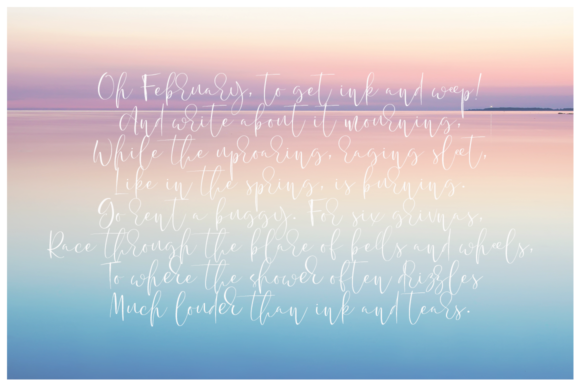 Oh February, to get ink and weep!
And write about it mourning,
While the uproaring, raging sleet,
Like in the spring, is burning.
Go rent a buggy. For six grivnas,
Race through the blare of bells and wheels,
To where the shower often drizzles
Much louder than ink and tears.